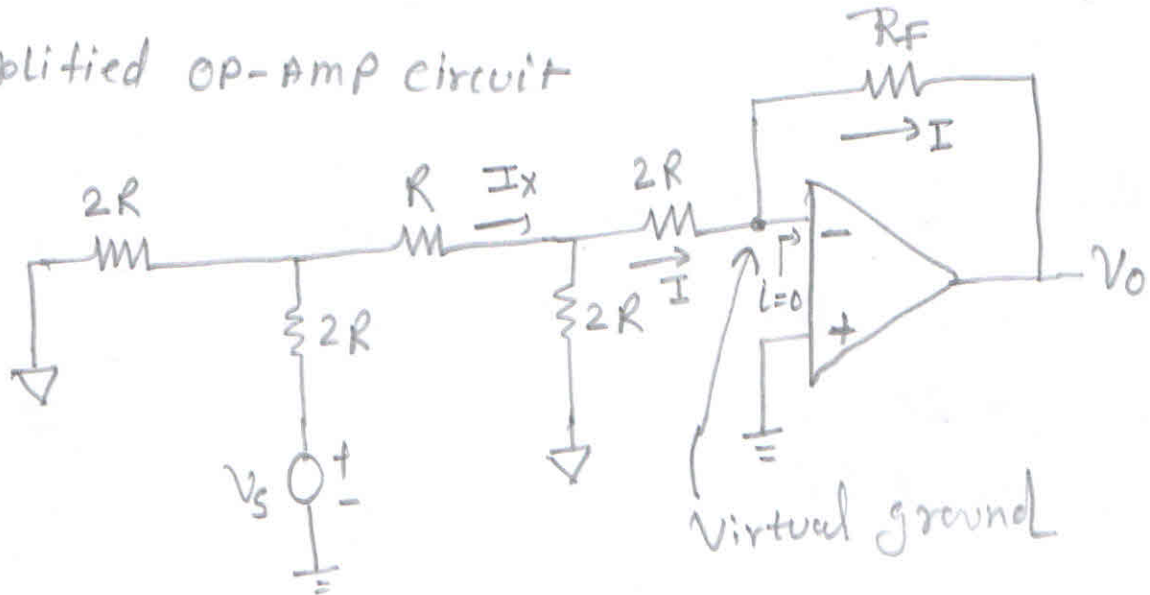 plified OP-Amp circuit
RF
I
2R
R
Ix
2R
I
i=0
-
+
Vo
2R
2R
Vs
+
-
Virtual ground